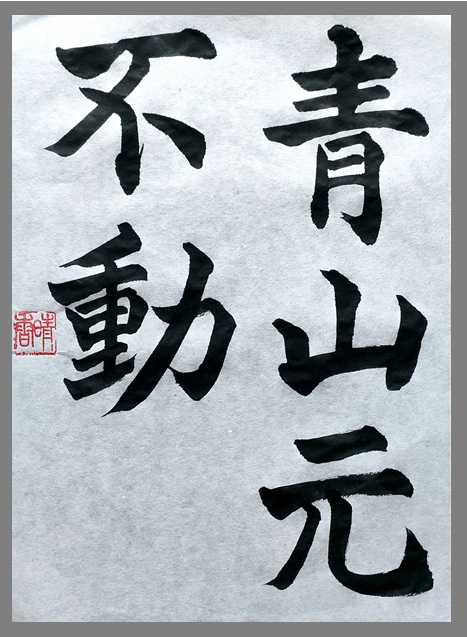 青山元
不動
晴香